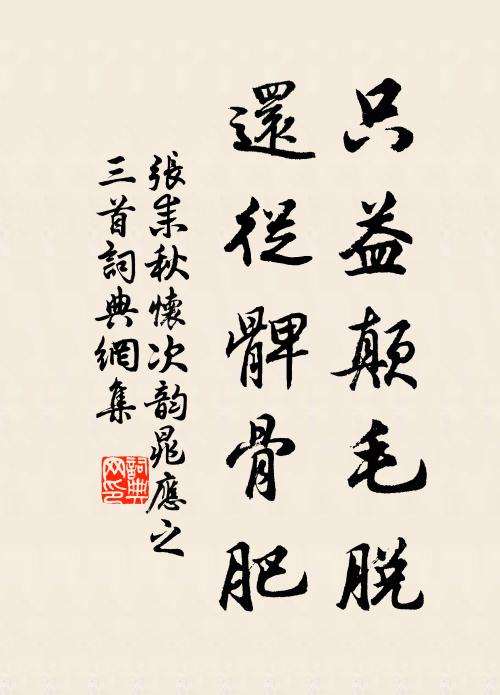 只益顛毛脫
還從髀骨肥
張耒秋懷次韵晁應之
三首詞典網集
詞典
网印